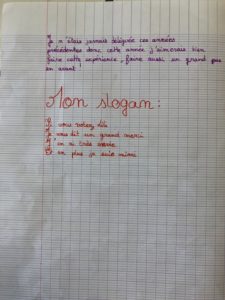 Je n'étais jamais déléguée ces années
précédentes donc cette année j'aimerais bien
faire cette expérience, faire aussi un grand pas
en avant
Mon slogan:
Si vous votez
Je vous dit un grand merci
J' très
Et en plus je suis mimi